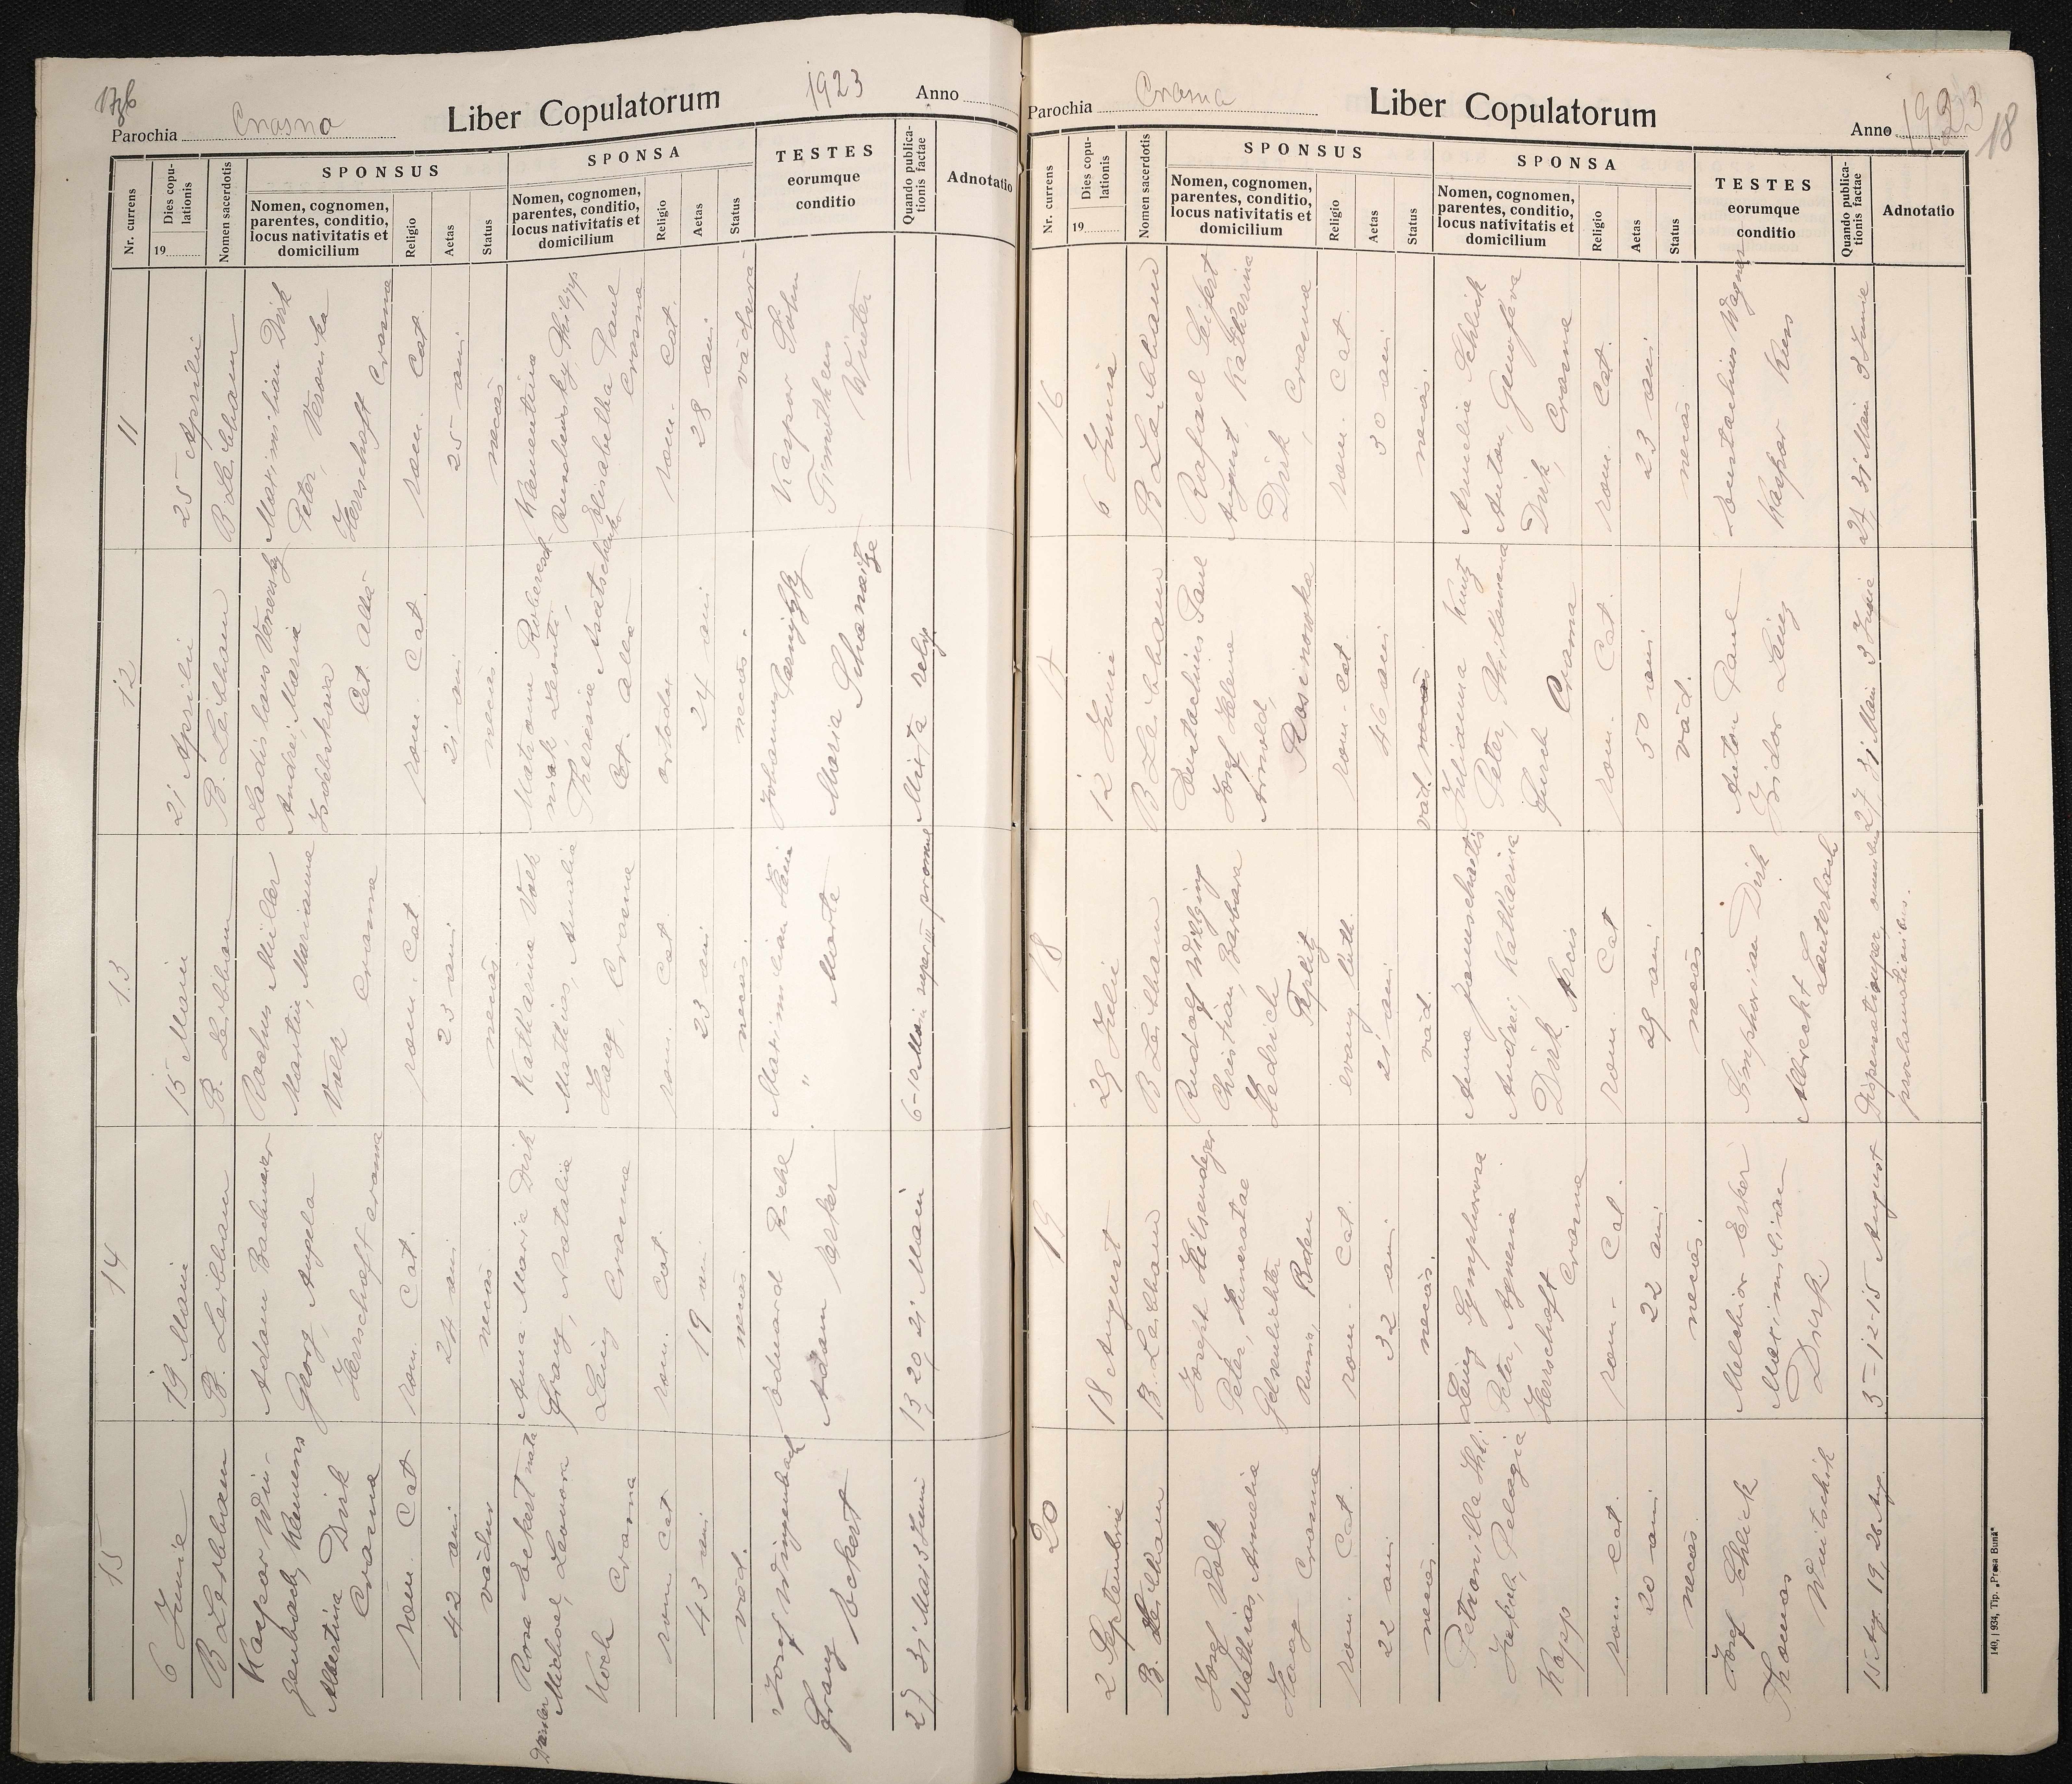 Parochia Crasna
Liber Copulatorum
1923
Anno
Nr. currens
Dies copu-
lationis
19
Nomen sacerdotis
SPONSUS
Nomen, cognomen,
parentes, conditio,
locus nativitatis et
domicilium
Religio
Aetas
Status
SPONSA
Nomen, cognomen,
parentes, conditio,
locus nativitatis et
domicilium
Religio
Aetas
Status
TESTES
eorumque
conditio
Quando publica-
tionis factae
Adnotatio
11
25 Aprilii
B Leibham
Maximilian Dirk
Peter, Veronika
Herrschaft Crasna
rom. Cat.
25 ani
necăs.
Klementina
Ruscheinsky, Philipp
Elisabetha Paul
Crasna
rom. Cat.
28 ani
văduvă-
Kaspar Söhn
Timotheus
Winter
12
21 Aprilii
B. Leibham
Ladislaus
Andrei, Maria
Cet. Albă
rom. Cat.
21 ani
necăs.
Matrona
Leonti,
Theresia
Cet. Albă
ortodox
24 ani
necăs.
Johannes
Maria
Mixta relig.
13
15 Maiu
B. Leibham
Rochus Müller
Martin, Marianna
Volk Crasna
rom. Cat.
23 ani
necăs.
Katharina Volk
Mathias, Amalia
Haag, Crasna
rom. Cat.
23 ani
necăs.
Maximilian Leinz
" Marte
6-10 Mai
14
19 Maiu
B. Leibham
Adam Bachmeier
Georg, Angela
Herrschaft Crasna
rom. Cat.
24 ani
necăs.
Anna Maria Dirk
Franz, Natalia
Leinz Crasna
rom. Cat.
19 ani
necăs.
Eduard Riehl
Adam Erker
13 20 21 Maiu
15
6 Junie
B Leibham
Kaspar Win-
genbach, Klemens
Albertina Dirk
Crasna
rom. Cat
42 ani
văduv
Rosa Eckert nata
Michael, Leonora
Koch Crasna
rom. Cat
43 ani
văd.
Josef Wingenbach
Franz Eckert
27 31 Mai 3 Juni
Parochia Crasna
Liber Copulatorum
Anno 1923
18
Nr. currens
Dies copu-
lationis
19
Nomen sacerdotis
SPONSUS
Nomen, cognomen,
parentes, conditio,
locus nativitatis et
domicilium
Religio
Aetas
Status
SPONSA
Nomen, cognomen,
parentes, conditio,
locus nativitatis et
domicilium
Religio
Aetas
Status
TESTES
eorumque
conditio
Quando publica-
tionis factae
Adnotatio
16
6 Junie
B Leibham
Rafael Seifert
August, Katharina
Dirk, Crasna
rom. Cat.
30 ani
necăs.
Amelia Schlick
Anton, Genofeva
Dirk, Crasna
rom. Cat.
23 ani
necăs
Eustachius Wagner
Kaspar Kuss
27 31 Mai 3 Junie
17
12 Junie
B Leibham
Eustachius Paul
Josef Helena
Arnold,
Rosinowka
rom. Cat.
46 ani
văd. necăs
Julianna Kuntz
Peter, Philomena
Furch Crasna
rom. Cat.
50 ani
văd.
Anton Paul
Isidor Leinz
27 31 Mai 3 Junie
18
29 Julii
B Leibham
Rudolf
Christian, Barbara
Hedrich
Teplitz
evang. luth.
21 ani
văd.
Anna
Andrei, Katharina
Dirk. Arcis
rom. Cat
29 ani
necăs
Simphorian Dirk
Albrecht Lauterbach
Dispensatio super omnibus
proclamationibus.
19
18 August
B. Leibham
Josef
Peter,
Baden
rom. Cat.
32 ani
necăs.
Leinz Symphorosa
Peter, Agnesia
Herrschaft
Crasna
rom. Cat.
22 ani
necăs.
Melchior Erker
Maximilian
Dirk
5-12-15 August
20
2 Septembrie
B. Leibham
Josef Volk
Mathias, Amelia
Haag Crasna
rom. Cat.
22 ani
necăs.
Petronilla
Jakob, Pelagia
Kopp
rom. Cat.
20 ani
necăs.
Josef Schlick
Thomas Winitschik
15 Aug. 19, 26 Aug.
140, | 934, Tip. „Presa Bună"